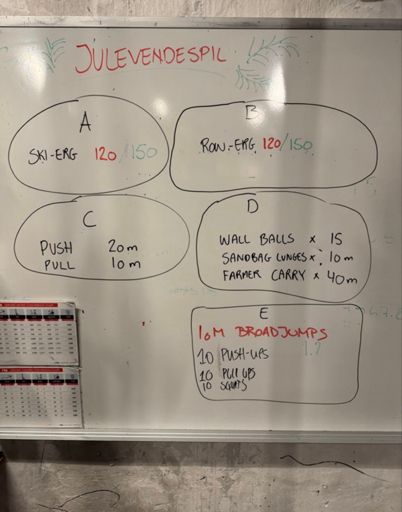 JULEVENDESPIL
A
SKI-ERG 120/150
B
ROW-ERG 120/150
C
PUSH 20m
PULL 10m
D
WALL BALLS x 15
SANDBAG LUNGES x 10m
FARMER CARRY x 40m
E
10M BROADJUMPS
10 PUSH-UPS
10 PULL UPS
10 SQUATS